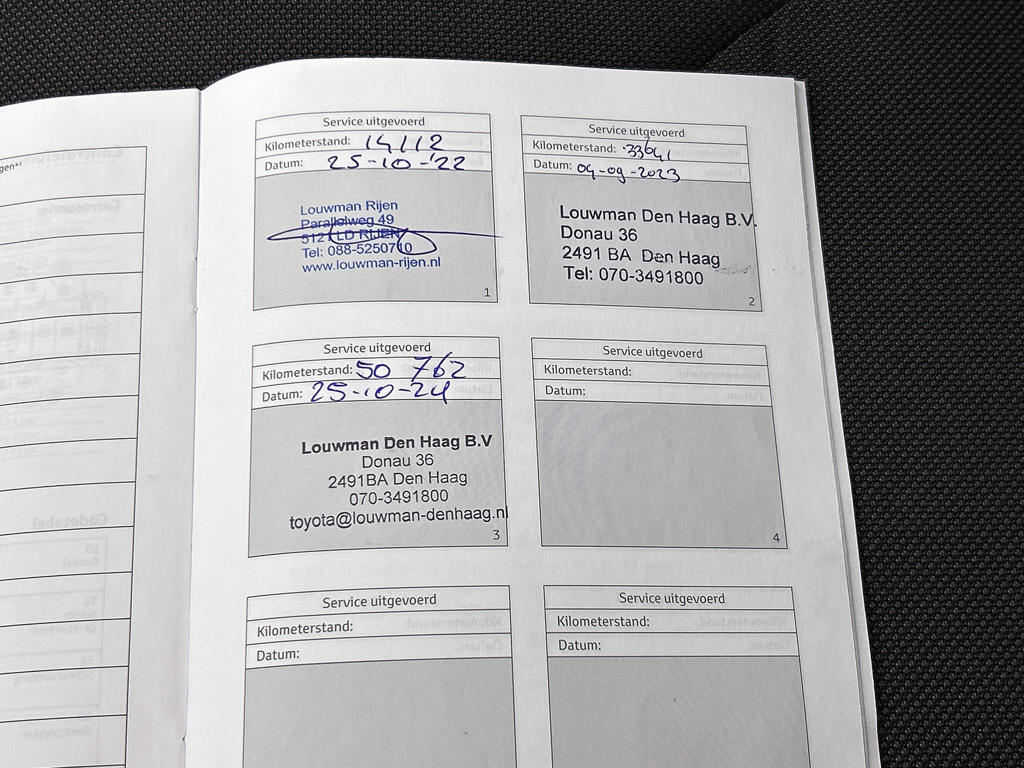 gen*⁾
Service uitgevoerd
Kilometerstand: 14112
Datum: 25-10-'22
Louwman Rijen
Parallelweg 49
LD RIJEN
Tel: 088-5250710
www.louwman-rijen.nl
1
Service uitgevoerd
Kilometerstand: 33641
Datum: 04-09-2023
Louwman Den Haag B.V.
Donau 36
2491 BA Den Haag
Tel: 070-3491800
2
Service uitgevoerd
Kilometerstand: 50 762
Datum: 25-10-24
Louwman Den Haag B.V
Donau 36
2491BA Den Haag
070-3491800
toyota@louwman-denhaag.nl
3
Service uitgevoerd
Kilometerstand:
Datum:
4
Service uitgevoerd
Kilometerstand:
Datum:
Service uitgevoerd
Kilometerstand:
Datum: